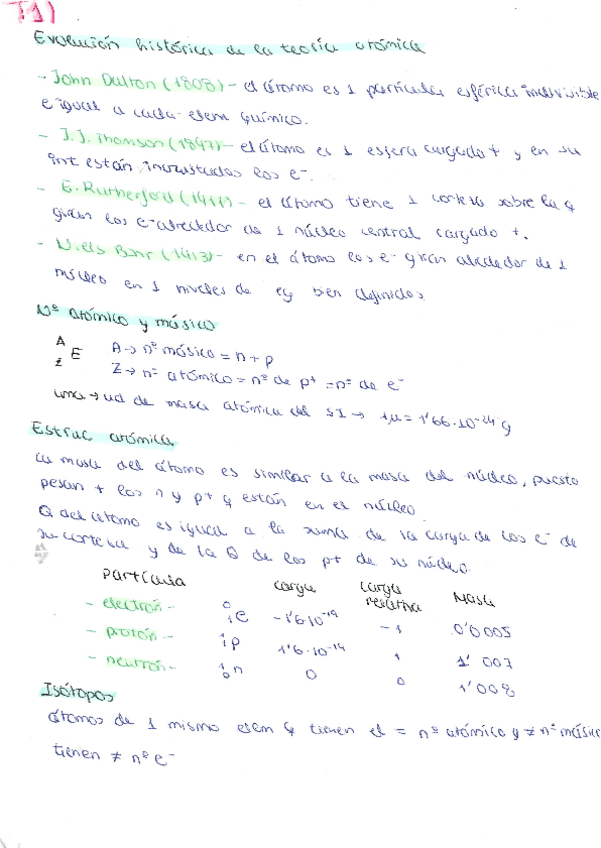 T1)
Evolución histórica de la teoría atómica
- John Dalton (1808) - el átomo es 1 partícula esférica indivisible
e igual a cada elem químico.
- J.J. Thomson (1897) - el átomo es 1 esfera cargada + y en su
int están incrustados los e⁻.
- E. Rutherford (1911) - el átomo tiene 1 corteza sobre la q
giran los e⁻ alrededor de 1 núcleo central cargado +.
- Niels Bohr (1913) - en el átomo los e⁻ giran alrededor de 1
núcleo en 1 niveles de eg bien definidos
Nº atómico y másico
A Z E A → nº másico = n + p
Z → nº atómico = nº de p⁺ = nº de e⁻
uma → ud de masa atómica del SI → 1μ = 1'66·10⁻²⁴ g
Estruc atómica
La masa del átomo es similar a la masa del núcleo, puesto
pesan + los n y p⁺ q están en el núcleo
Q del átomo es igual a la suma de la carga de los e⁻ de
su corteza y de la Q de los p⁺ de su núcleo.
partícula carga carga relativa Masa
- electrón - 0 -1 e -1'6·10⁻¹⁹ -1 0'0005
- protón - 1 1 p 1'6·10⁻¹⁹ 1 1'007
- neutrón - 1 0 n 0 0 1'008
Isótopos
átomos de 1 mismo elem q tienen el = nº atómico y ≠ nº másico
tienen ≠ nº e⁻